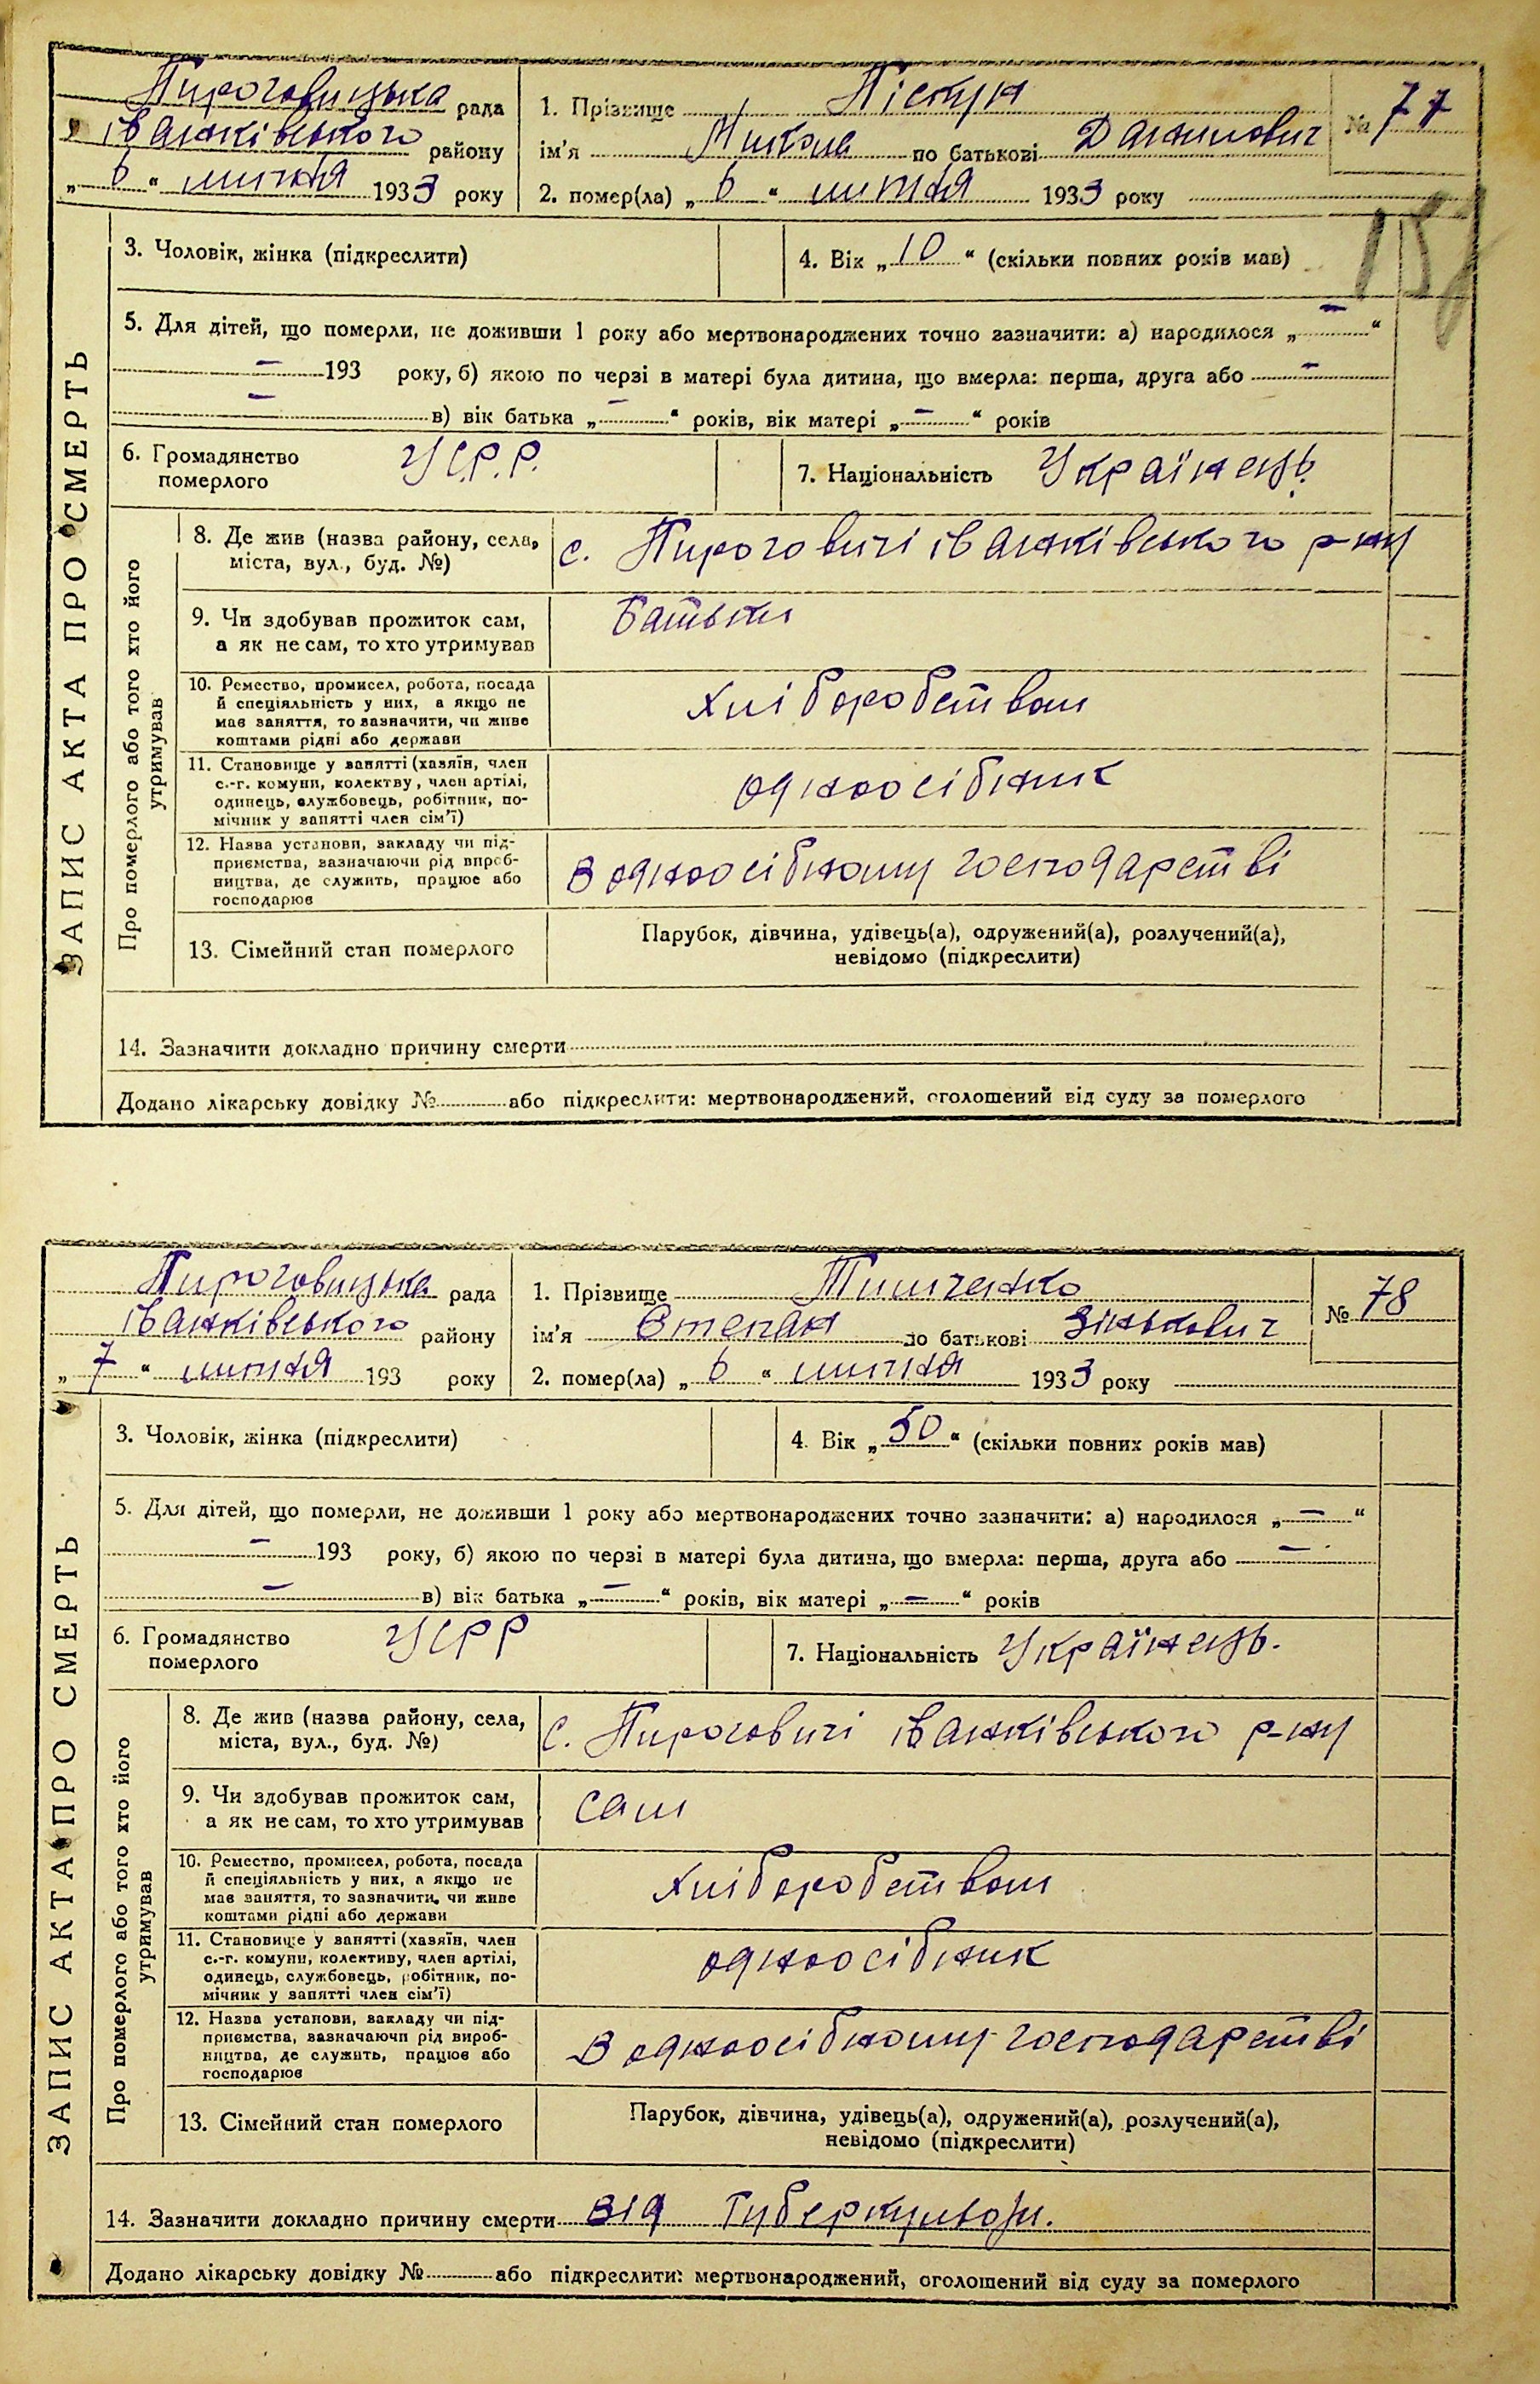 Пироговицька рада
Іванківського району
„ 6 “ липня 1933 року
1. Прізвище Піскун
ім'я Микола по батькові Данилович
2. помер(ла) „ 6 “ липня 1933 року
№ 77
3. Чоловік, жінка (підкреслити)
4. Вік „ 10 “ (скільки повних років мав)
5. Для дітей, що померли, не доживши 1 року або мертвонароджених точно зазначити: а) народилося „ — “
— 193 року, б) якою по черзі в матері була дитина, що вмерла: перша, друга або —
— в) вік батька „ — “ років, вік матері „ — “ років
6. Громадянство
померлого
УСРР.
7. Національність Українець.
ЗАПИС АКТА ПРО СМЕРТЬ
Про померлого або того хто його
утримував
8. Де жив (назва району, села,
міста, вул., буд. №)
с. Пироговичі Іванківського р-ну
9. Чи здобував прожиток сам,
а як не сам, то хто утримував
Батьки
10. Ремество, промисел, робота, посада
й спеціяльність у них, а якщо не
має заняття, то зазначити, чи живе
коштами рідні або держави
Хліборобством
11. Становище у занятті (хазяїн, член
с.-г. комуни, колектву, член артілі,
одинець, службовець, робітник, по-
мічник у занятті член сім'ї)
одноосібник
12. Назва установи, закладу чи під-
приємства, зазначаючи рід вироб-
ництва, де служить, працює або
господарює
В одноосібному господарстві
13. Сімейний стан померлого
Парубок, дівчина, удівець(а), одружений(а), розлучений(а),
невідомо (підкреслити)
14. Зазначити докладно причину смерти
Додано лікарську довідку № або підкреслити: мертвонароджений, оголошений від суду за померлого
Пироговицька рада
Іванківського району
„ 7 “ липня 193 року
1. Прізвище Тимченко
ім'я Степан по батькові Зінькович
2. помер(ла) „ 6 “ липня 1933 року
№ 78
3. Чоловік, жінка (підкреслити)
4. Вік „ 50 “ (скільки повних років мав)
5. Для дітей, що померли, не доживши 1 року або мертвонароджених точно зазначити: а) народилося „ — “
— 193 року, б) якою по черзі в матері була дитина, що вмерла: перша, друга або —
— в) вік батька „ — “ років, вік матері „ — “ років
6. Громадянство
померлого
УСРР
7. Національність Українець.
ЗАПИС АКТА ПРО СМЕРТЬ
Про померлого або того хто його
утримував
8. Де жив (назва району, села,
міста, вул., буд. №)
С. Пироговичі Іванківського р-ну
9. Чи здобував прожиток сам,
а як не сам, то хто утримував
сам
10. Ремество, промисел, робота, посада
й спеціяльність у них, а якщо не
має заняття, то зазначити, чи живе
коштами рідні або держави
Хліборобством
11. Становище у занятті (хазяїн, член
с.-г. комуни, колективу, член артілі,
одинець, службовець, робітник, по-
мічник у занятті член сім'ї)
одноосібник
12. Назва установи, закладу чи під-
приємства, зазначаючи рід вироб-
ництва, де служить, працює або
господарює
В одноосібному господарстві
13. Сімейний стан померлого
Парубок, дівчина, удівець(а), одружений(а), розлучений(а),
невідомо (підкреслити)
14. Зазначити докладно причину смерти Від Туберкульози.
Додано лікарську довідку № або підкреслити: мертвонароджений, оголошений від суду за померлого